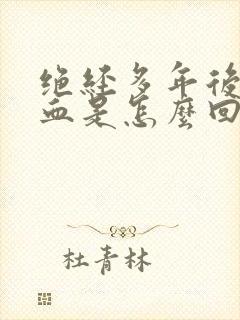 绝经多年後
血是怎麽回
杜青林